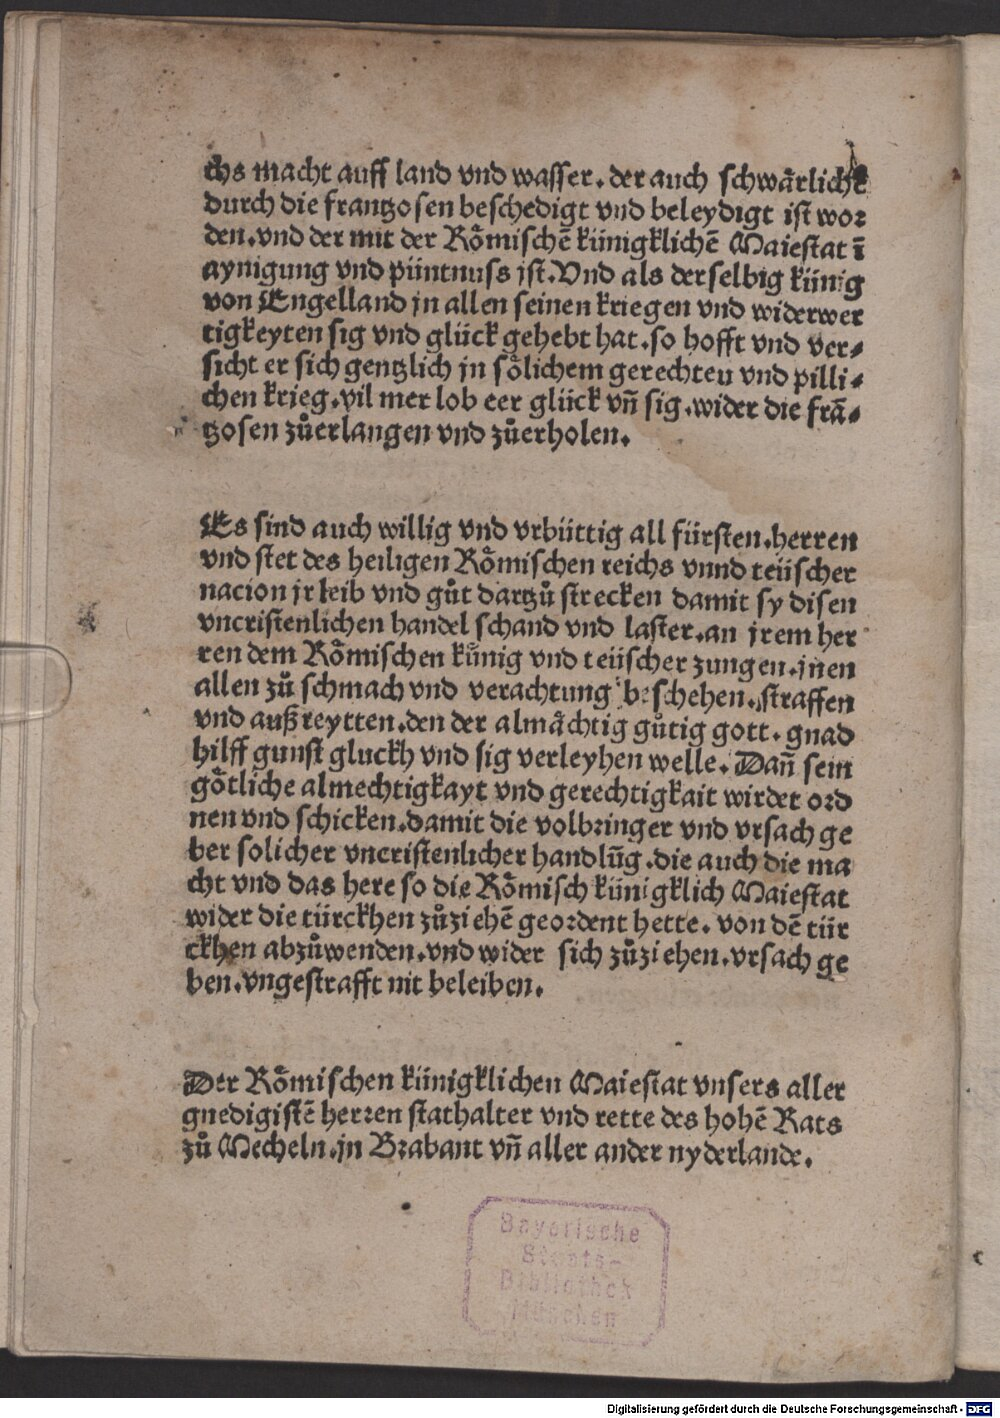 chs macht auff land vnd wasser. der auch schwårliche
durch die frantzosen beschedigt vnd beleydigt ist wor
den. vnd der mit der Rőmischē künigklichē Maiestat ī
aynigung vnd püntnuss ist. Vnd als derselbig künig
von Engelland jn allen seinen kriegen vnd widerwer
tigkeyten sig vnd glück gehebt hat. so hofft vnd ver⸗
sicht er sich gentzlich jn sőlichem gerechten vnd pilli⸗
chen krieg. vil mer lob eer glück vn̄ sig. wider die frā⸗
tzosen zůerlangen vnd zůerholen.
Es sind auch willig vnd vrbüttig all fürsten. herren
vnd stet des heiligen Rőmischen reichs vnnd teüscher
nacion jr leib vnd gůt dartzů strecken damit sy disen
vncristenlichen handel schand vnd laster. an jrem her
ren dem Rőmischen künig vnd teüscher zungen. jnen
allen zů schmach vnd verachtung beschehen. straffen
vnd außreytten. den der almåchtig gůtig gott. gnad
hilff gunst gluckh vnd sig verleyhen welle. Dan̄ sein
gőtliche almechtigkayt vnd gerechtigkait wirdet ord
nen vnd schicken. damit die volbringer vnd vrsach ge
ber solicher vncristenlicher handlūg. die auch die ma
cht vnd das here so die Rőmisch künigklich Maiestat
wider die türckhen zůziehē geordent hette. von dē tür
ckhen abzůwenden. vnd wider sich zůziehen. vrsach ge
ben. vngestrafft nit beleiben.
Der Rőmischen künigklichen Maiestat vnsers aller
gnedigistē herren stathalter vnd rette des hohē Rats
zů Mecheln. jn Brabant vn̄ aller ander nyderlande.
Bayerische
Staats-
Bibliothek
München
Digitalisierung gefördert durch die Deutsche Forschungsgemeinschaft - DFG